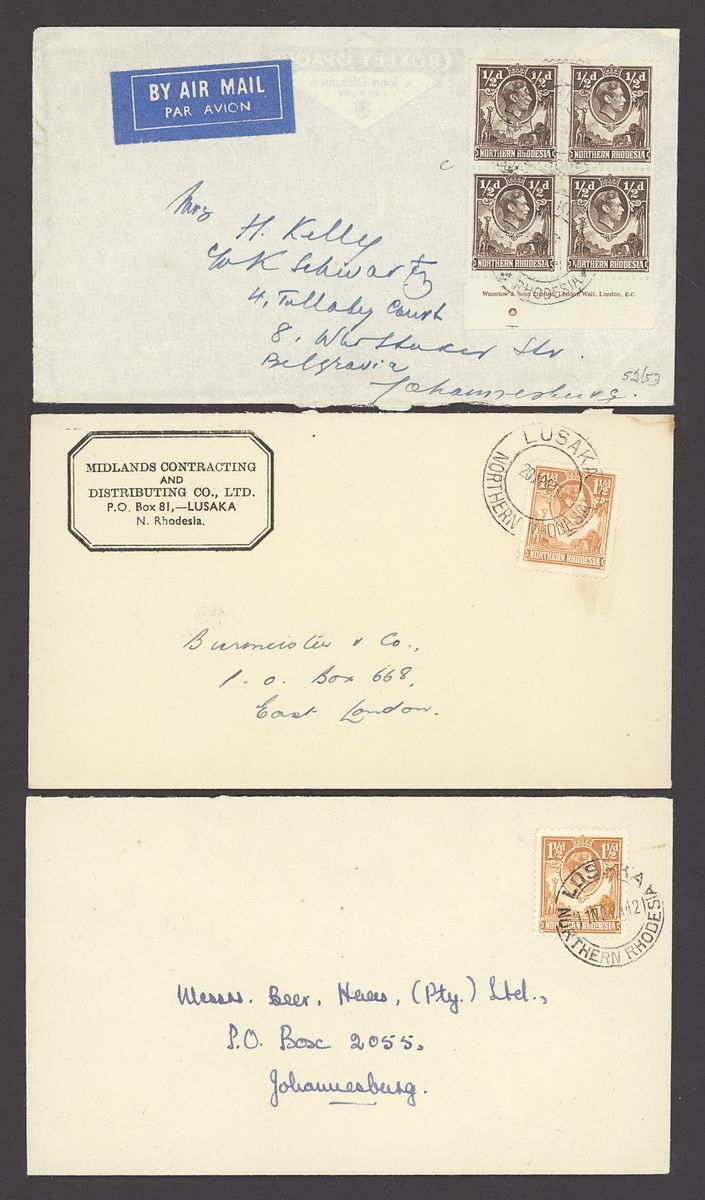 BY AIR MAIL
PAR AVION
½d ½d
NORTHERN RHODESIA
½d ½d
NORTHERN RHODESIA
½d ½d
NORTHERN RHODESIA
½d ½d
NORTHERN RHODESIA
RHODESIA
Waterlow & Sons Limited, London Wall, London, E.C.
Mrs
H. Kelly
c/o K Schwartz
4, Court
8, Str.
Belgravia
Johannesburg.
52/53
MIDLANDS CONTRACTING
AND
DISTRIBUTING CO., LTD.
P.O. Box 81,—LUSAKA
N. Rhodesia.
LUSAKA
NORTHERN RHODESIA
1½d 1½d
NORTHERN RHODESIA
Burmeister & Co.,
P. O. Box 668,
East London.
1½d 1½d
NORTHERN RHODESIA
LUSAKA
NORTHERN RHODESIA
Messrs. Beer, (Pty.) Ltd.,
P.O. Box 2055,
Johannesburg.